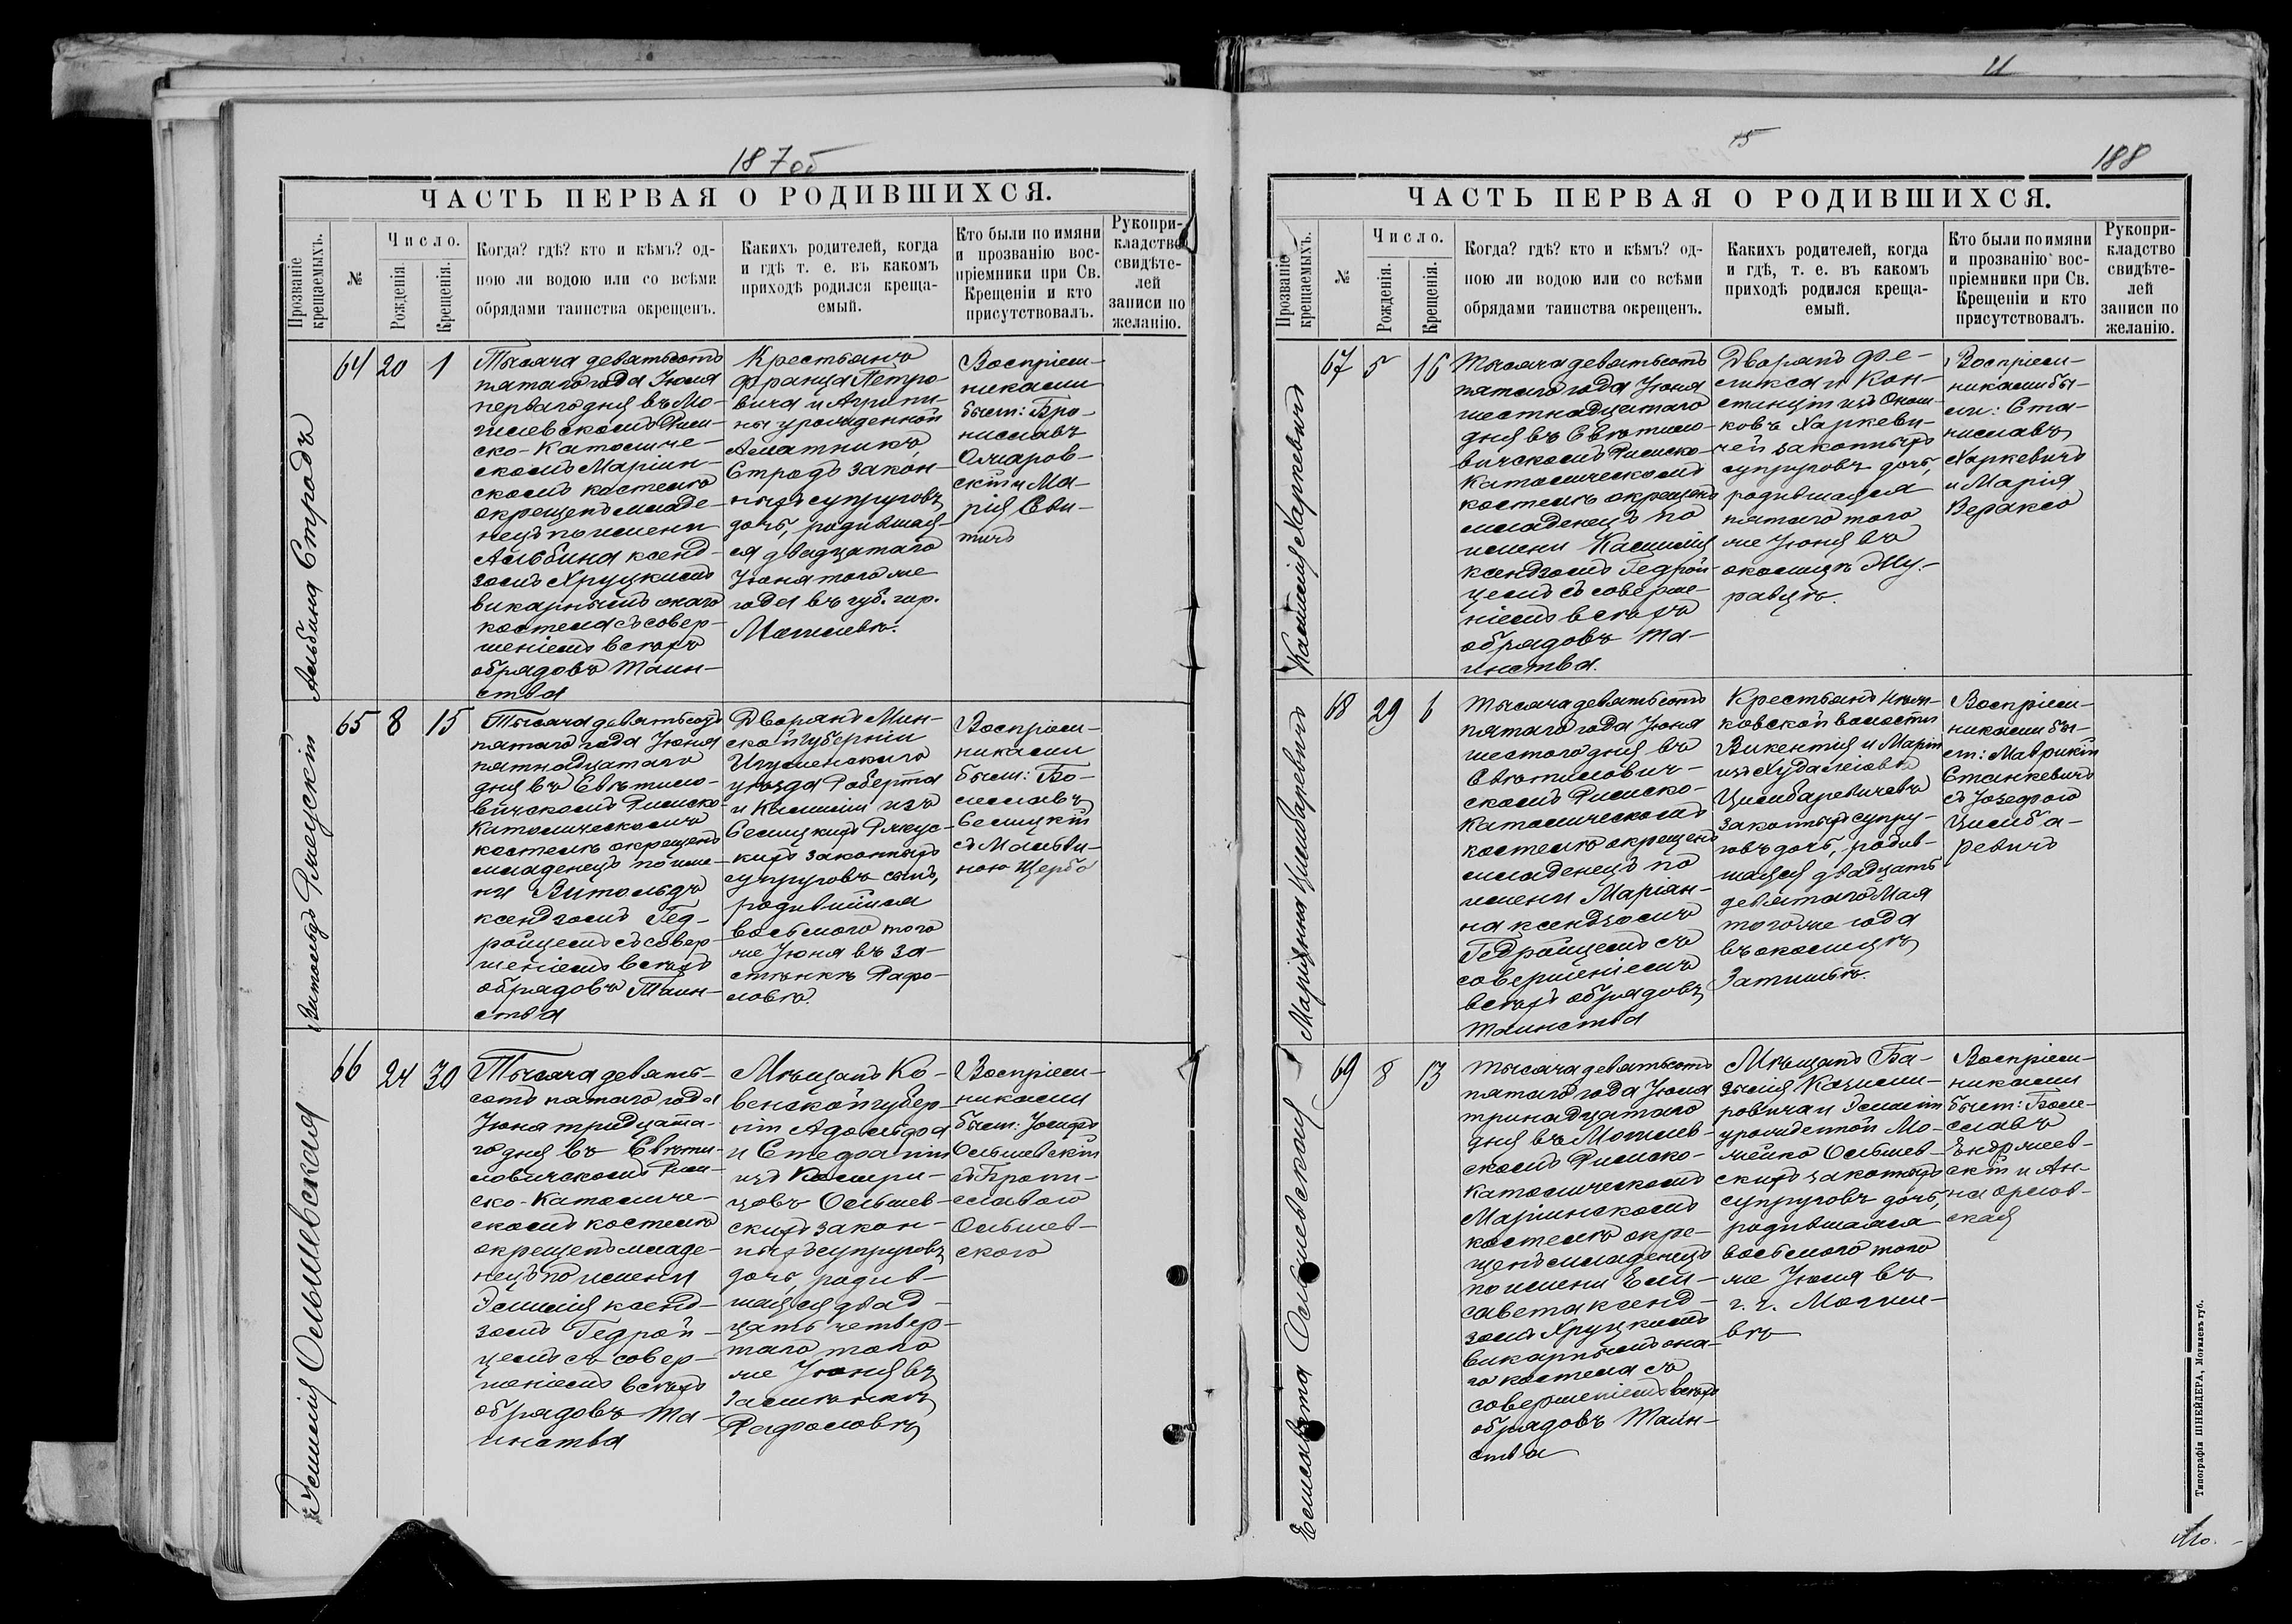 187об
ЧАСТЬ ПЕРВАЯ О РОДИВШИХСЯ.
Прозваніе
крещаемыхъ.
№
Число.
Рожденія.
Крещенія.
Когда? гдѣ? кто и кѣмъ? од-
ною ли водою или со всѣми
обрядами таинства окрещенъ.
Какихъ родителей, когда
и гдѣ т. е. въ какомъ
приходѣ родился креща-
емый.
Кто были по имяни
и прозванію вос-
пріемники при Св.
Крещеніи и кто
присутствовалъ.
Рукопри-
кладство
свидѣте-
лей
записи по
желанію.
Альбина Стродъ
64
20
1
Тысяча девятьсотъ
пятаго года Іюля
перваго дня въ Мо-
гилевскомъ Рим-
ско-Католиче-
скомъ Маріин-
скомъ костелѣ
окрещенъ младе-
нецъ по имени
Альбина ксенд-
зомъ Хруцкимъ
викарнымъ онаго
костела съ совер-
шеніемъ всѣхъ
обрядовъ Таин-
ства
Крестьянъ
Франца Петро-
вича и Агрипи-
ны урожденной
Стродъ закон-
ныхъ супруговъ
дочь, родившая-
ся двадцатаго
Іюня того же
года въ губ. гор.
Могилевѣ.
Воспріем-
никами
были: Бро-
ниславъ
скій и Ма-
рія
65
8
15
Тысяча девятьсотъ
пятаго года Іюня
пятнадцатаго
дня въ Свѣтило-
вичскомъ Римско-
Католическомъ
костелѣ окрещенъ
младенецъ по име-
ни Витольдъ
ксендзомъ Гед-
ройцемъ съ совер-
шеніемъ всѣхъ
обрядовъ Таин-
ства
Дворянъ Мин-
ской губерніи
Игуменскаго
уѣзда Роберта
и Камиліи изъ
кихъ законныхъ
супруговъ сынъ,
родившійся
восьмого того
же Іюня въ за-
стѣнкѣ Рафо-
ловѣ.
Воспріем-
никами
были: Бо-
леславъ
съ Мальви-
ною Щербо
Эмилія Ольшевская
66
24
30
Тысяча девять-
сотъ пятаго года
Іюня тридцата-
го дня въ Свѣти-
ловичскомъ Рим-
ско-Католиче-
скомъ костелѣ
окрещенъ младе-
нецъ по имени
Эмилія ксенд-
зомъ Гедрой-
цемъ съ совер-
шеніемъ всѣхъ
обрядовъ Та-
инства
Мѣщанъ Ко-
венской губер-
ніи Адольфа
и Стефаніи
изъ
Ольшев-
скихъ закон-
ныхъ супруговъ
дочь, родив-
шаяся двад-
цать четвер-
таго того
же Іюня въ
застѣнкѣ
Рафоловкѣ
Воспріем-
никами
были: Іосифъ
Ольшевскій
съ Брони-
славою
Ольшев-
ского
11
15
188
ЧАСТЬ ПЕРВАЯ О РОДИВШИХСЯ.
Прозваніе
крещаемыхъ.
№
Число.
Рожденія.
Крещенія.
Когда? гдѣ? кто и кѣмъ? од-
ною ли водою или со всѣми
обрядами таинства окрещенъ.
Какихъ родителей, когда
и гдѣ, т. е. въ какомъ
приходѣ родился креща-
емый.
Кто были по имяни
и прозванію вос-
пріемники при Св.
Крещеніи и кто
присутствовалъ.
Рукопри-
кладство
свидѣте-
лей
записи по
желанію.
Камилія Харкевичъ
67
5
16
Тысяча девятьсотъ
пятаго года Іюня
шестнадцатаго
дня въ Свѣтило-
вичскомъ Римско-
Католическомъ
костелѣ окрещенъ
младенецъ по
имени Камилія
ксендзомъ Гедрой-
цемъ съ соверше-
ніемъ всѣхъ
обрядовъ Та-
инства.
Дворянъ Фе-
ликса и Кон-
станціи изъ
Харкеви-
чей законныхъ
супруговъ дочь,
родившаяся
пятаго того
же Іюня въ
околицѣ Му-
равцѣ.
Воспріем-
никами бы-
ли: Ста-
ниславъ
Харкевичъ
и Марія
Вераксо
Маріянна Цимбаревичъ
68
29
6
Тысяча девятьсотъ
пятаго года Іюня
шестого дня въ
Свѣтилович-
скомъ Римско-
Католическомъ
костелѣ окрещенъ
младенецъ по
имени Маріян-
на ксендзомъ
Гедройцемъ съ
совершеніемъ
всѣхъ обрядовъ
таинства
Крестьянъ
ковской волости
Викентія и Маріи
Цимбаревичевъ
законныхъ супру-
говъ дочь, родив-
шаяся двадцать
девятаго Мая
того же года
въ околицѣ
Затишьѣ.
Воспріем-
никами бы-
ли: Маврикій
Станкевичъ
съ Іозефою
Цимба-
ревичъ
Елисавета Ольшевская
69
8
13
Тысяча девятьсотъ
пятаго года Іюля
тринадцатаго
дня въ Могилев-
скомъ Римско-
Католическомъ
Маріинскомъ
костелѣ окре-
щенъ младенецъ
по имени Ели-
савета ксенд-
зомъ Хруцкимъ
викарнымъ она-
го костела съ
совершеніемъ всѣхъ
обрядовъ Таин-
ства
Мѣщанъ Ба-
зылія Казими-
ровича и Эмиліи
урожденной Мо-
жейко Ольшев-
скихъ законныхъ
супруговъ дочь,
родившаяся
восьмого того
же Іюля въ
г. г. Могиле-
вѣ
Воспріем-
никами
были: Боле-
славъ
Ендржеев-
скій и Ан-
на Орлов-
ская
Типографія ШНЕЙДЕРА, Могилевъ губ.